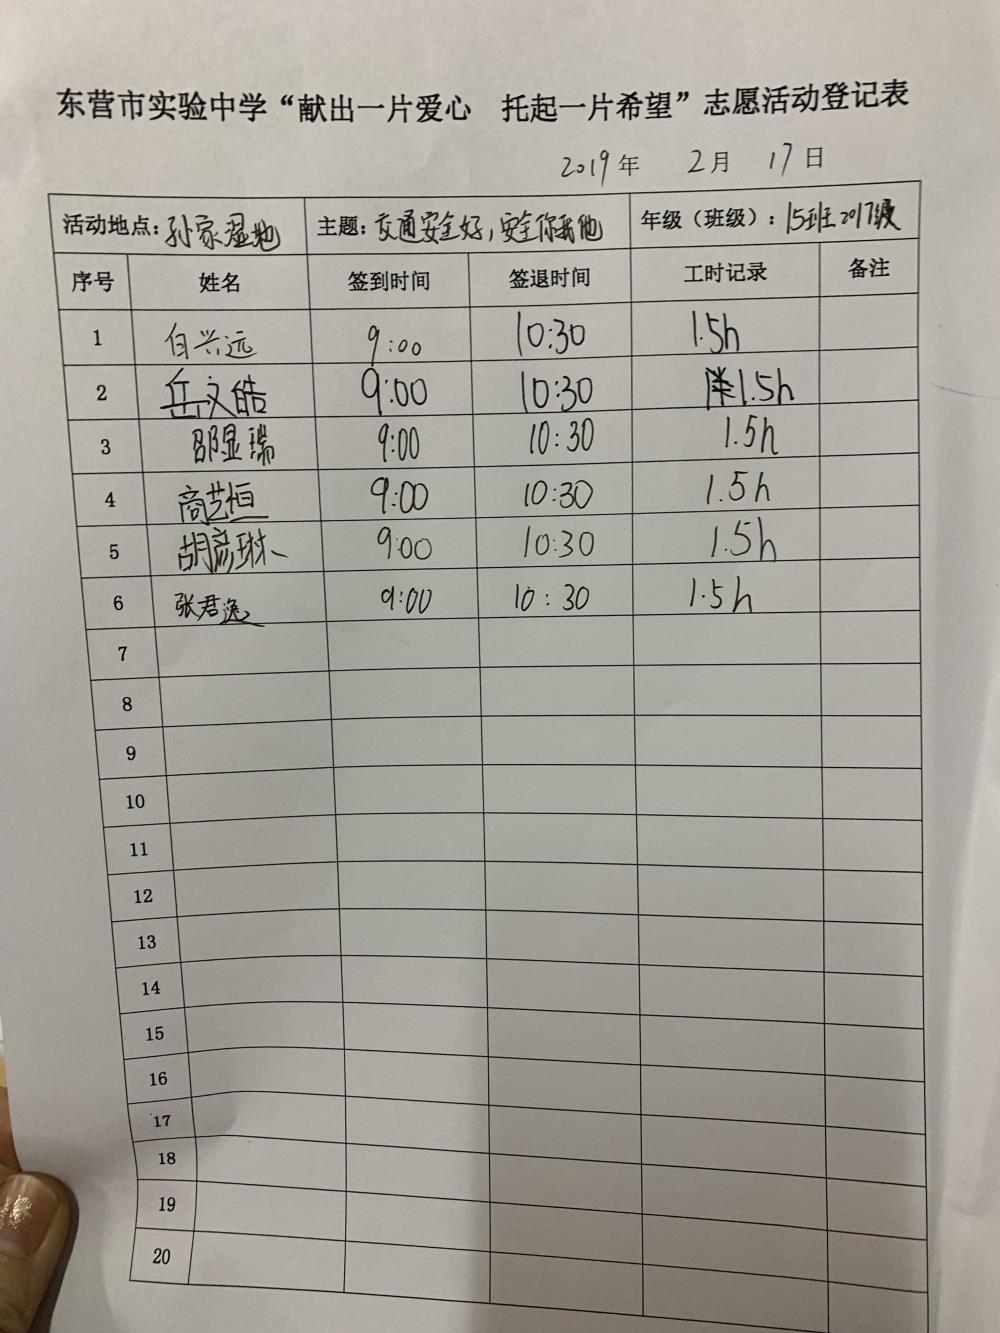 东营市实验中学“献出一片爱心 托起一片希望”志愿活动登记表
2019年 2月 17日
活动地点:孙家湿地 主题:交通安全好,安全你我他 年级(班级):15班2017级
序号 姓名 签到时间 签退时间 工时记录 备注
1 白兴远 9:00 10:30 1.5h
2 岳文皓 9:00 10:30 1.5h
3 邵显瑞 9:00 10:30 1.5h
4 商艺恒 9:00 10:30 1.5h
5 胡彦琳 9:00 10:30 1.5h
6 张君逸 9:00 10:30 1.5h
7
8
9
10
11
12
13
14
15
16
17
18
19
20